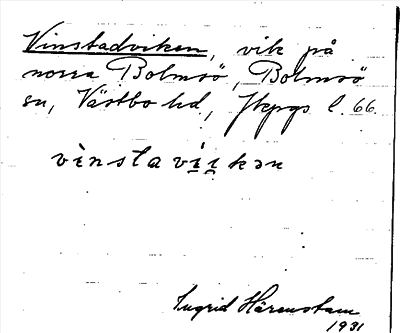 Vinstadviken, vik på
norra Bolmsö, Bolmsö
sn, Västbo hd, Jkpgs l. 66.
vìnstavi̱i̱kən
Ingrid Härenstam
1931